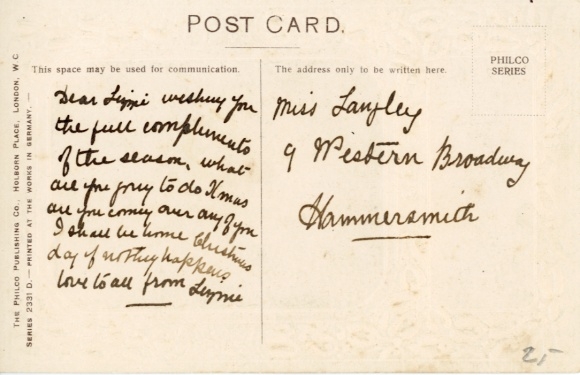 POST CARD.
THE PHILCO PUBLISHING CO., HOLBORN PLACE, LONDON, W C
SERIES 2331 D. — PRINTED AT THE WORKS IN GERMANY. —
This space may be used for communication.
Dear Lizzie weshing you
the full compliments
of the season, what
are you gony to do Xmas
are you comey over any of you
I shall be home Christmas
day if nothey happens
love to all from Lizzie
The address only to be written here.
PHILCO
SERIES
Miss Langley
9 Western Broadway
Hammersmith
25